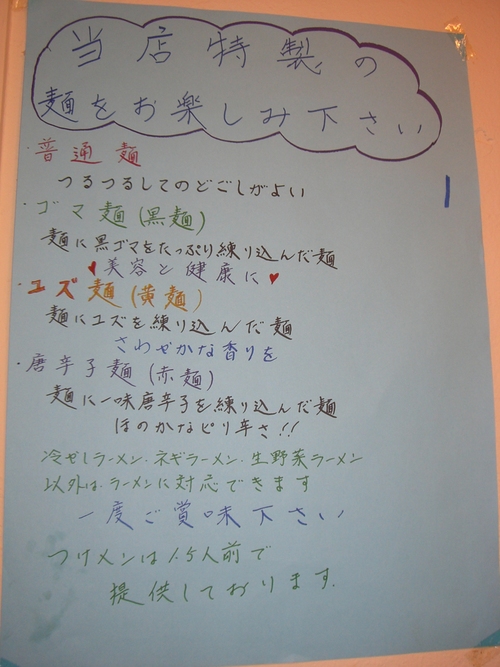 当店特製の
麺をお楽しみ下さい
・普通麺
つるつるしてのどごしがよい
・ゴマ麺(黒麺)
麺に黒ゴマをたっぷり練り込んだ麺
♥美容と健康に♥
・ユズ麺(黄麺)
麺にユズを練り込んだ麺
さわやかな香りを
・唐辛子麺(赤麺)
麺に一味唐辛子を練り込んだ麺
ほのかなピリ辛さ!!
冷やしラーメン・ネギラーメン・生野菜ラーメン
以外は、ラーメンに対応できます
一度ご賞味下さい
つけメンは1.5人前で
提供しております。